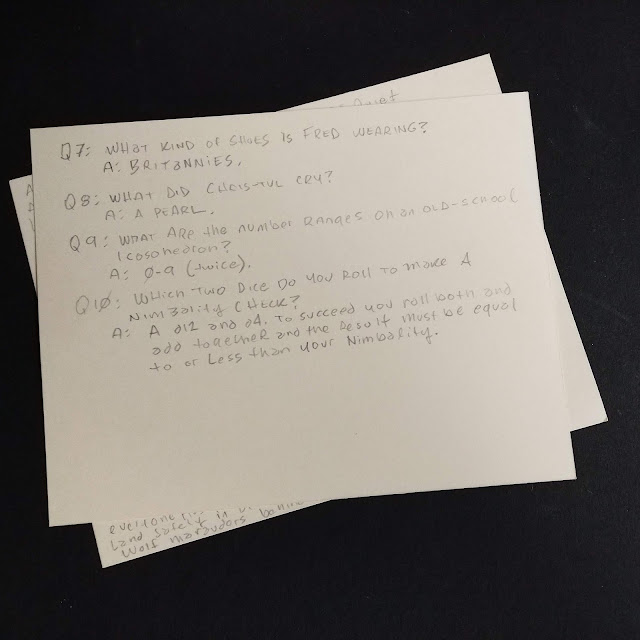 Quiet
Q7: WHAT KIND OF SHOES IS FRED WEARING?
A: BRITANNIES.
Q8: WHAT DID CHRIS-TUL CRY?
A: A PEARL.
Q9: WHAT ARE the NUMBER RANGES ON AN OLD-SCHOOL
ICOSOHEDRON?
A: 0-9 (twice).
Q10: WHICH TWO DICE DO YOU ROLL TO MAKE A
NIMBALITY CHECK?
A: A D12 AND D4. TO SUCCEED YOU ROLL BOTH AND
ADD TOGETHER AND THE RESULT MUST BE EQUAL
TO OR LESS THAN YOUR NIMBALITY.
everyone
Land safely in
Wolf marauders